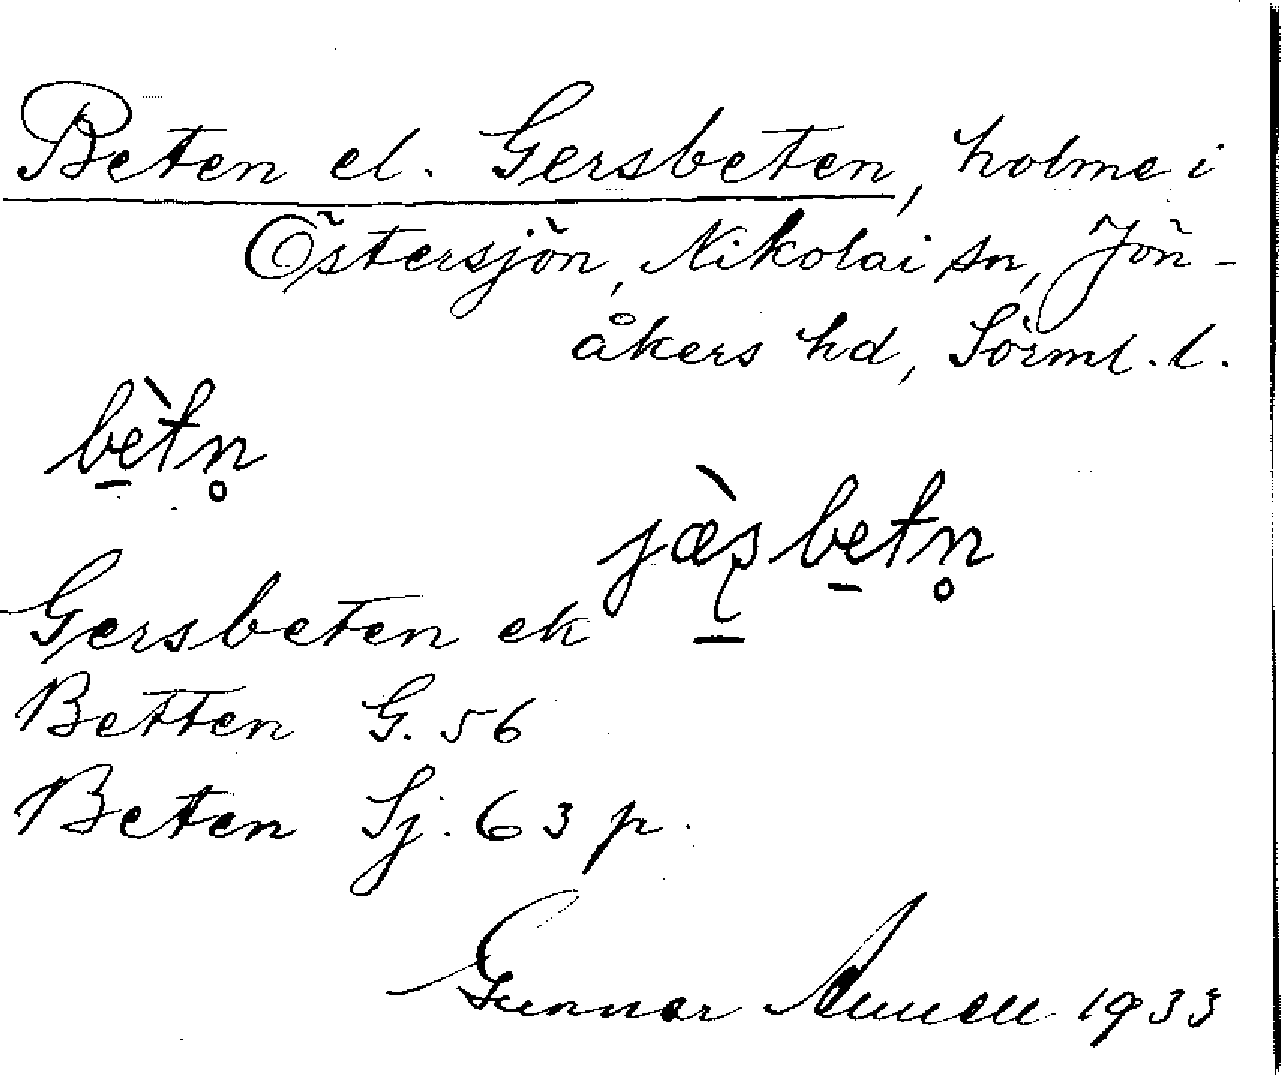 Beten el. Gersbeten, holme i
Östersjön, Nikolai sn, Jön-
åkers hd, Sörml. l.
bè̱tn̥
jæ̀ʂbe̱tn̥
Gersbeten ek
Betten G. 56
Beten Sj. 63 p.
Gunnar 1933